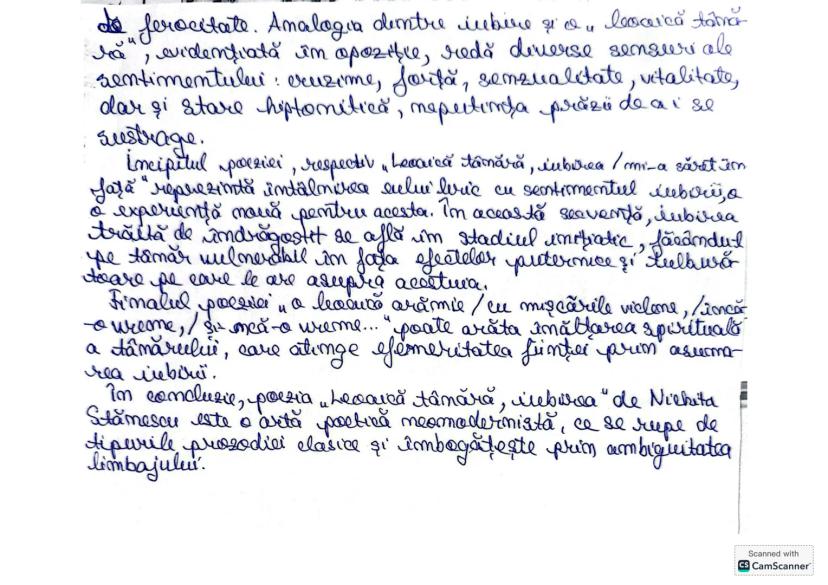 de ferocitate. Analogia dintre iubire și o „leoaică tână-
ră”, evidențiată în opoziție, redă diverse sensuri ale
sentimentului: cruzime, forță, senzualitate, vitalitate,
dar și stare hiptonitică, neputința prăzii de a i se
sustrage.
Incipitul poeziei, respectiv „Leoaică tânără, iubirea / mi-a sărit în
față” reprezintă întâlnirea eului liric cu sentimentul iubirii, o
o experiență nouă pentru acesta. În această secvență, iubirea
trăită de îndrăgostit se află în stadiul inițiatic, făcându-l
pe tânăr vulnerabil în fața efectelor puternice și tulbură-
toare pe care le are asupra acestuia.
Finalul poeziei „o leoaică arămie / cu mișcările viclene, / încă-
-o vreme, / și-ncă-o vreme...” poate arăta înălțarea spirituală
a tânărului, care atinge efemeritatea ființei prin asuma-
rea iubirii.
În concluzie, poezia „Leoaică tânără, iubirea” de Nichita
Stănescu este o artă poetică neomodernistă, ce se rupe de
tipurile prozodiei clasice și îmbogățește prin ambiguitatea
limbajului.
Scanned with
CS CamScanner